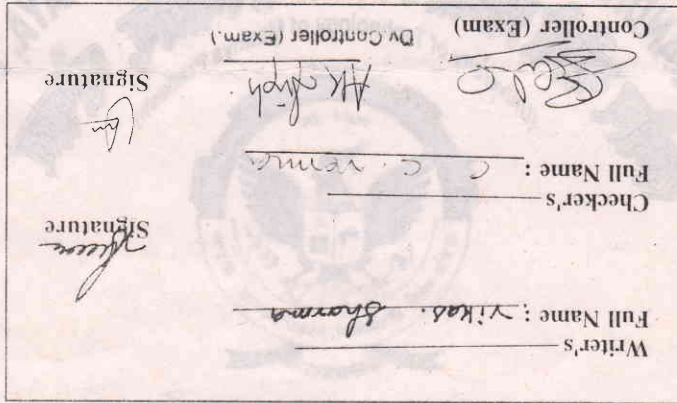 Writer's
Full Name : Vikas. Sharma
Signature
Checker's
Full Name : C. C. Verma
Signature
AK Singh
Controller (Exam)
Dy. Controller (Exam.)